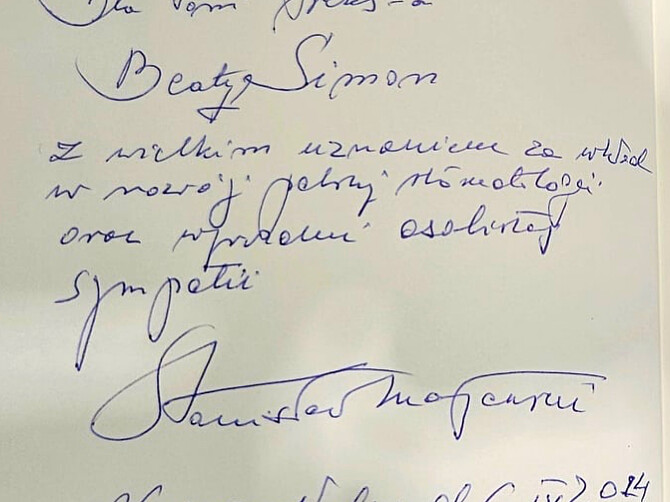 Dla Pani
Beaty Simon
z wielkim uznaniem za wkład
w rozwój polskiej stomatologii
oraz wyrazami osobistej
sympatii
Stanisław Majewski
IV 2014